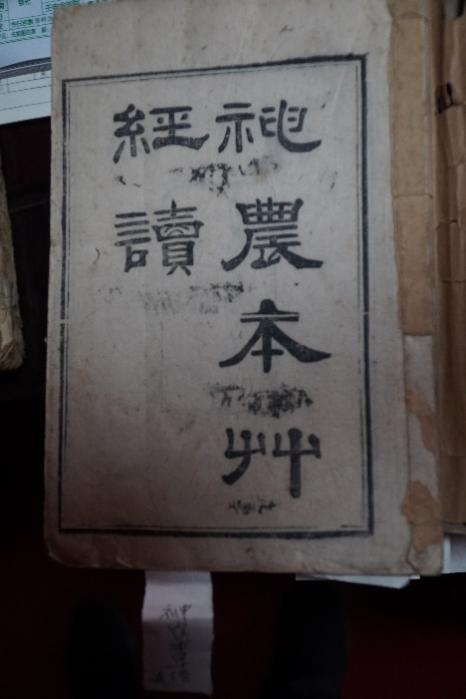 神農本艸
經讀